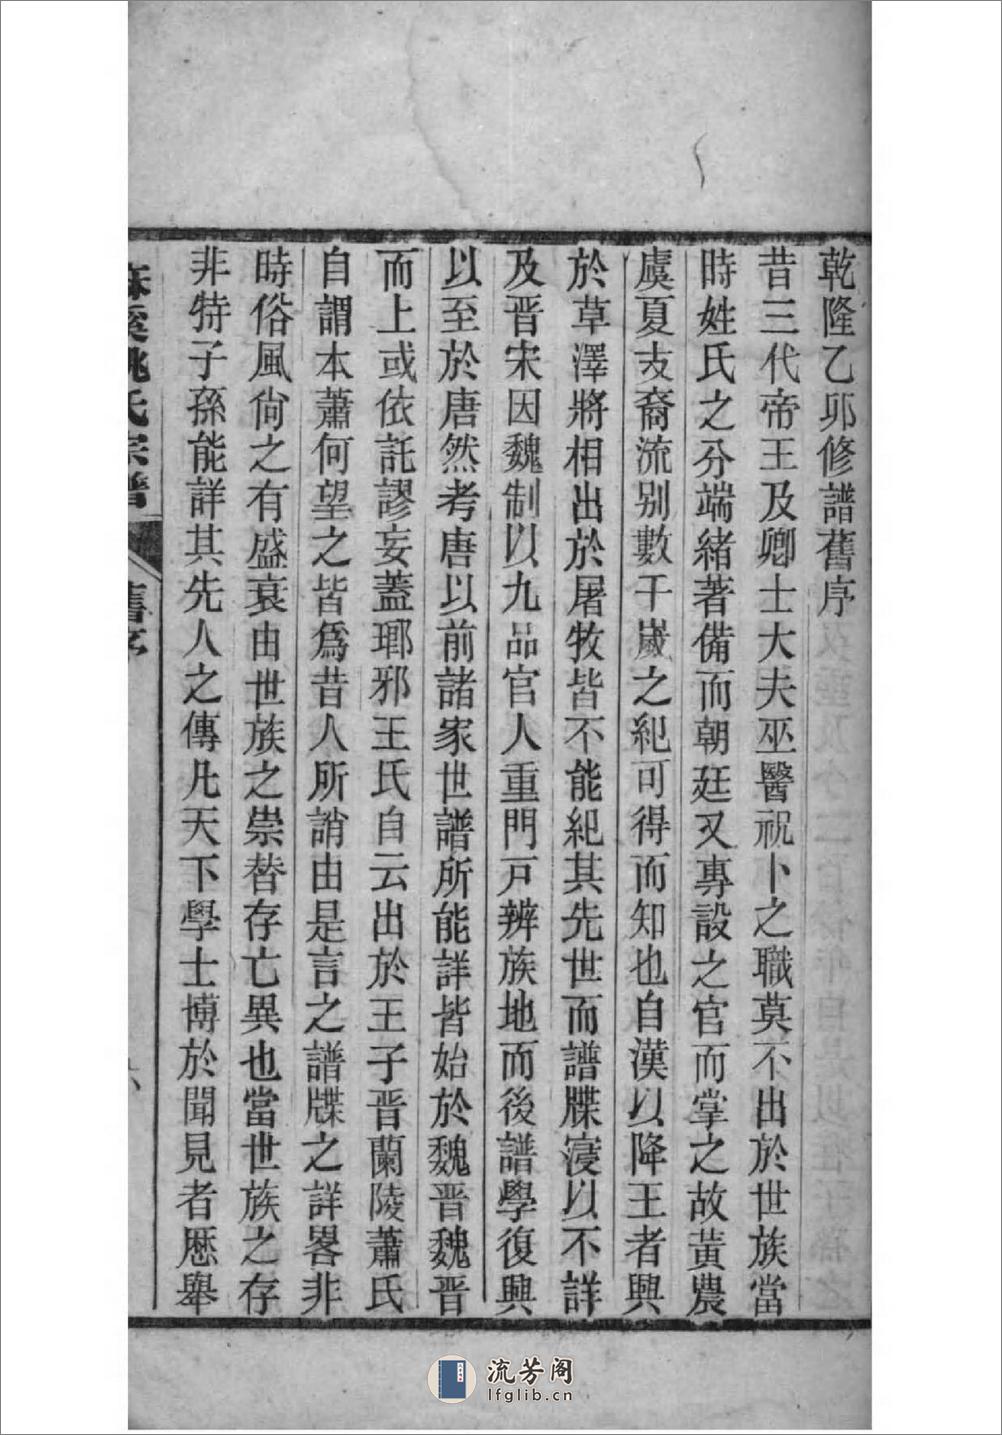 乾隆乙卯修譜舊序
昔三代帝王及卿士大夫巫醫祝卜之職莫不出於世族當
時姓氏之分端緒著備而朝廷又專設之官而掌之故黃農
虞夏支裔流别數千嵗之紀可得而知也自漢以降王者興
於草澤將相出於屠牧皆不能紀其先世而譜牒寖以不詳
及晋宋因魏制以九品官人重門戸辨族地而後譜學復興
以至於唐然考唐以前諸家世譜所能詳皆始於魏晋魏晋
而上或依託謬妄蓋瑘邪王氏自云出於王子晋蘭陵蕭氏
自謂本蕭何望之皆爲昔人所誚由是言之譜牒之詳畧非
時俗風尙之有盛衰由世族之崇替存亡異也當世族之存
非特子孫能詳其先人之傳凡天下學士博於聞見者厯舉
麻溪姚氏宗譜 舊序 六
流芳阁
lfglib.cn